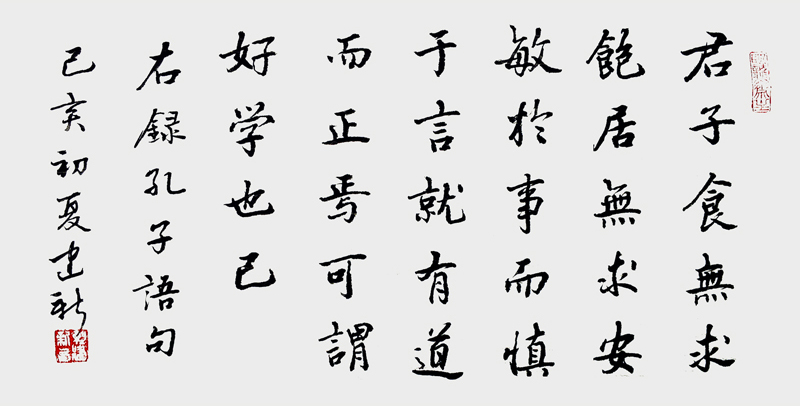 君子食無求
飽居無求安
敏於事而慎
于言就有道
而正焉可謂
好学也已
右録孔子語句
己亥初夏建新